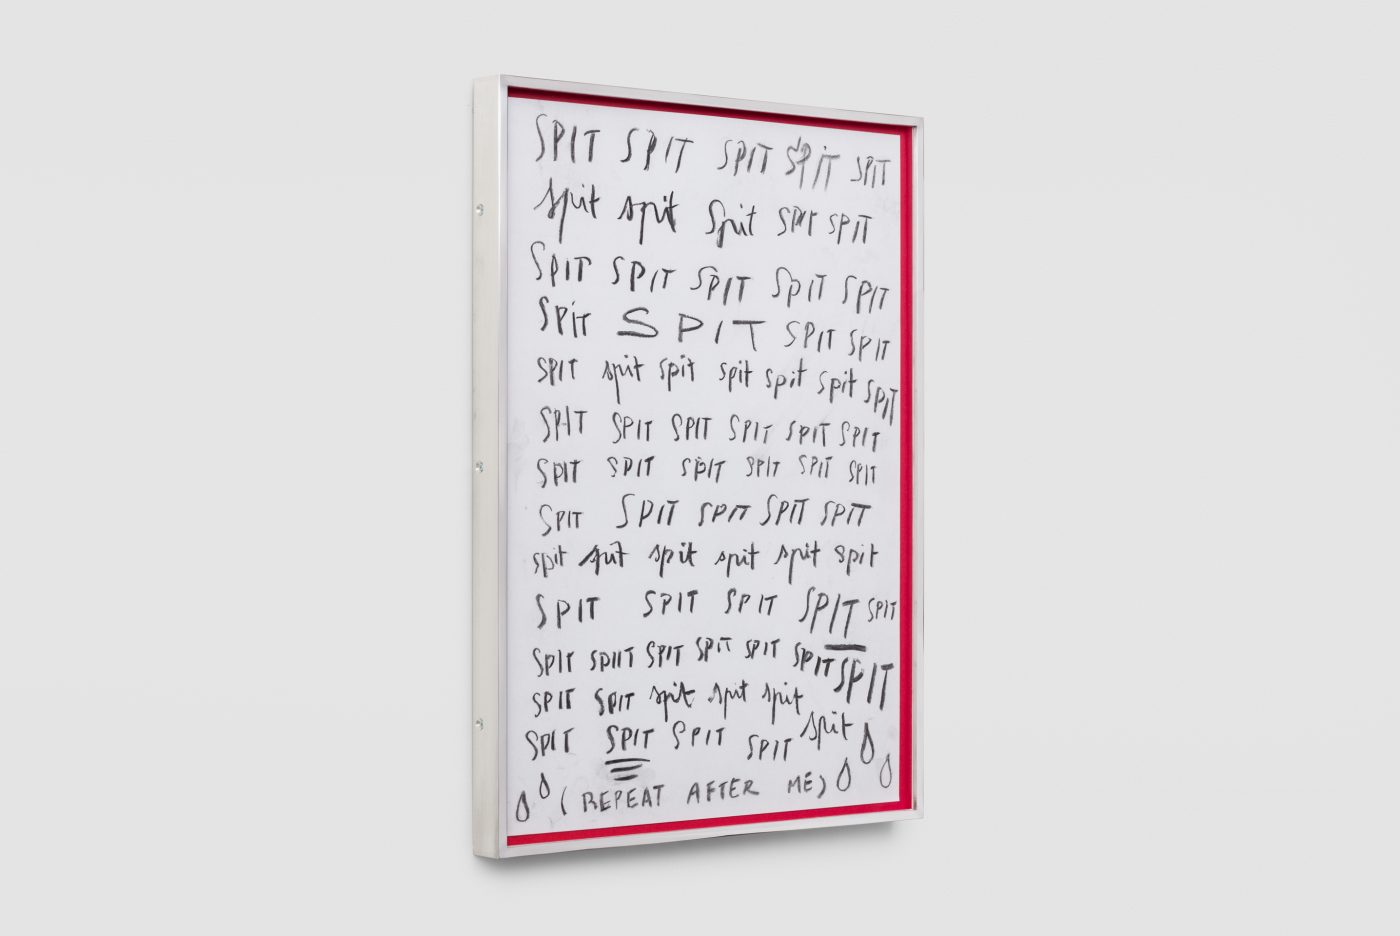 SPIT SPIT SPIT SPIT SPIT
spit spit Spit SPIT SPIT
SPIT SPIT SPIT SPIT SPIT
SPIT SPIT SPIT SPIT
SPIT spit spit spit spit spit SPIT
SPIT SPIT SPIT SPIT SPIT SPIT
SPIT SPIT SPIT SPIT SPIT SPIT
SPIT SPIT SPIT SPIT SPIT
spit spit spit spit spit spit
SPIT SPIT SPIT SPIT SPIT
SPIT SPIIT SPIT SPIT SPIT SPIT SPIT
SPIT SPIT spit spit spit
SPIT SPIT SPIT SPIT spit
(REPEAT AFTER ME)